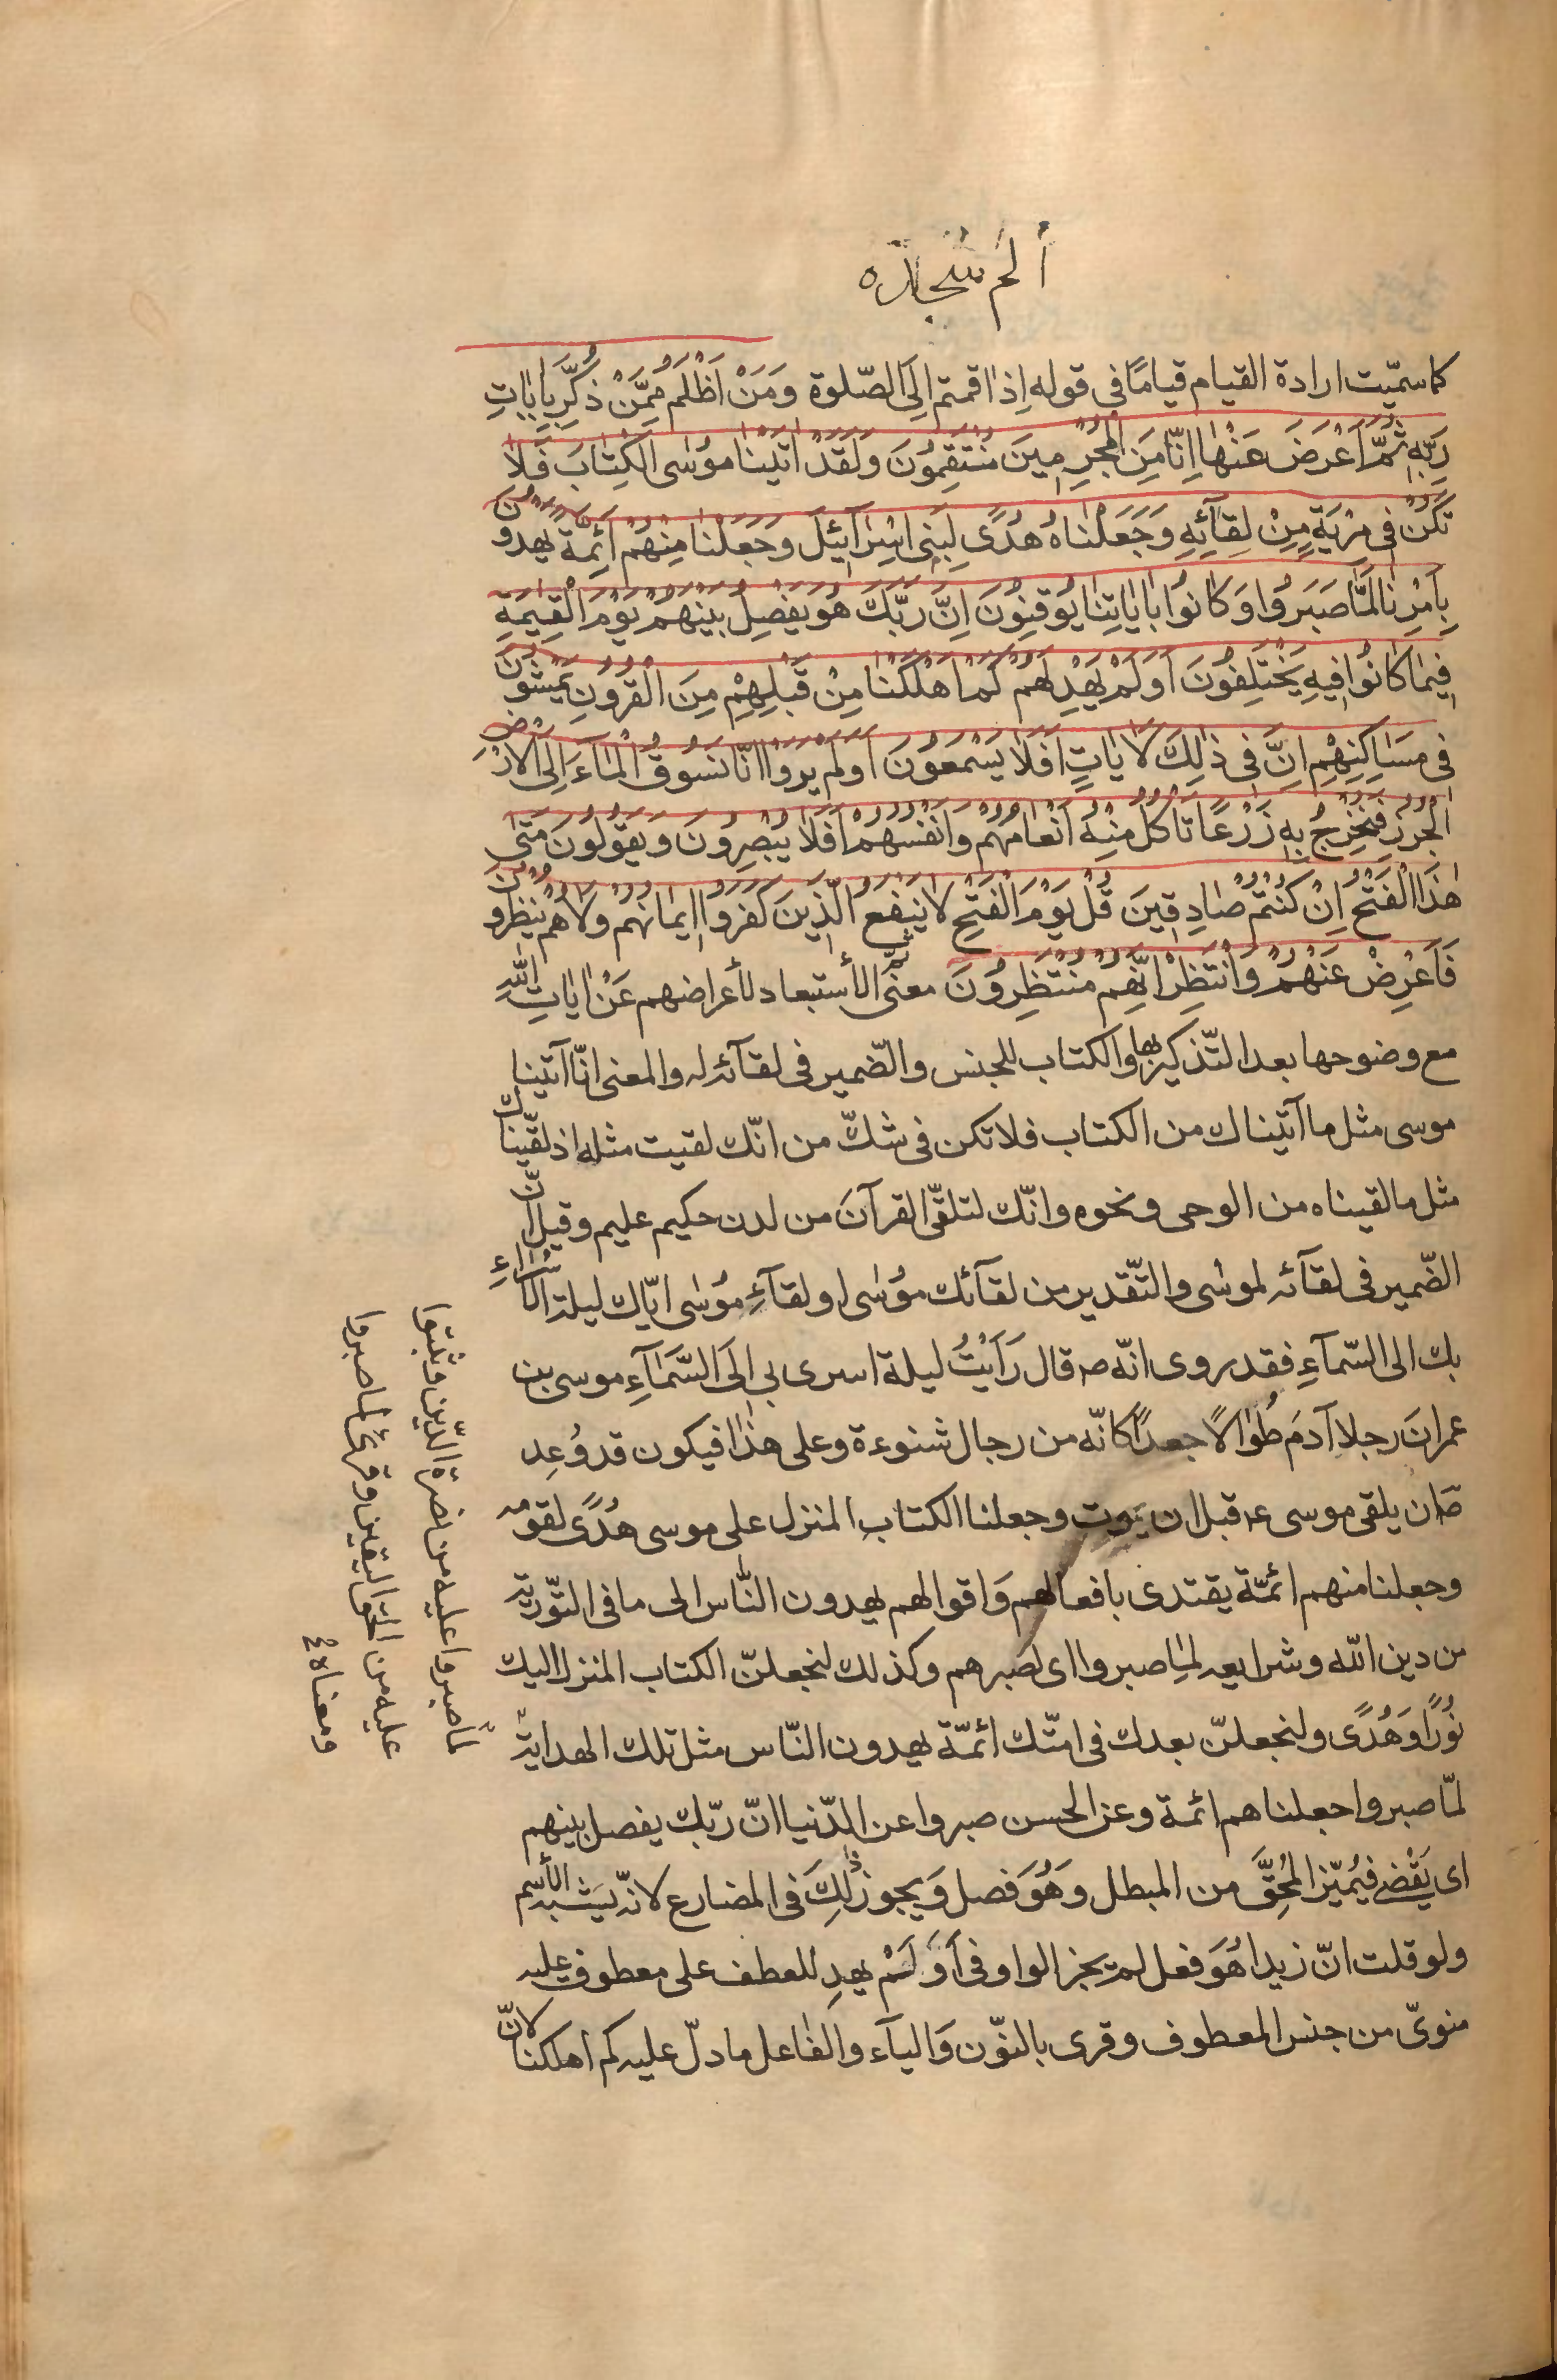 الم سجده
كما سمّيت ارادة القيام قيامًا فى قوله اِذا قمتم اِلَى الصّلوة وَمَنْ اَظْلَمُ مِمَّنْ ذُكِّرَ بِاٰيٰاتِ
رَبِّهِ ثُمَّ اَعْرَضَ عَنْهٰا اِنّٰا مِنَ الْمُجْرِمِينَ مُنْتَقِمُونَ وَلَقَدْ اٰتَيْنٰا مُوسَى الْكِتٰابَ فَلاٰ
تَكُنْ فى مِرْيَةٍ مِنْ لِقٰآئِهِ وَجَعَلْنٰاهُ هُدًى لِبَنِى اِسْرٰآئِيلَ وَجَعَلْنٰا مِنْهُمْ اَئِمَّةً يَهْدُونَ
بِاَمْرِنٰا لَمّٰا صَبَرُوا وَكٰانُوا بِاٰيٰاتِنٰا يُوقِنُونَ اِنَّ رَبَّكَ هُوَ يَفْصِلُ بَيْنَهُمْ يَوْمَ الْقِيٰمَةِ
فِيمٰا كٰانُوا فِيهِ يَخْتَلِفُونَ اَوَلَمْ يَهْدِ لَهُمْ كَمْ اَهْلَكْنٰا مِنْ قَبْلِهِمْ مِنَ الْقُرُونِ يَمْشُونَ
فى مَسٰاكِنِهِمْ اِنَّ فى ذٰلِكَ لَاٰيٰاتٍ اَفَلاٰ يَسْمَعُونَ اَوَلَمْ يَرَوْا اَنّٰا نَسُوقُ الْمٰآءَ اِلَى الْاَرْضِ
الْجُرُزِ فَنُخْرِجُ بِهِ زَرْعًا تَأْكُلُ مِنْهُ اَنْعٰامُهُمْ وَاَنْفُسُهُمْ اَفَلاٰ يُبْصِرُونَ وَيَقُولُونَ مَتىٰ
هٰذَا الْفَتْحُ اِنْ كُنْتُمْ صٰادِقِينَ قُلْ يَوْمَ الْفَتْحِ لاٰ يَنْفَعُ الَّذِينَ كَفَرُوا اِيمٰانُهُمْ وَلاٰ هُمْ يُنْظَرُونَ
فَاَعْرِضْ عَنْهُمْ وَانْتَظِرْ اِنَّهُمْ مُنْتَظِرُونَ معنى ثُمَّ الأستبعاد لأعراضهم عَنْ اٰيٰاتِ اللّٰهِ
مع وضوحها بعد التّذكير بها والكتاب للجنس والضّمير فى لقآئه له والمعنى انّا آتينا
موسى مثل ما آتيناك من الكتاب فلا تكن فى شكّ من انّك لقيت مثله اذ لقّيناك
مثل ما لقيناه من الوحى ونحوه وانّك لتلقّى القرآنَ من لدن حكيم عليم وقيل انّ
الضّمير فى لقآئه لموسٰى والتّقدير من لقآئك مُوسٰى او لقآءِ مُوسٰى ايّاك ليلة الأسراءِ
بك الى السّمآءِ فقد روى انّه ص قال رَأَيْتُ ليلة اسرى بى اِلَى السَّمٰآءِ موسى بن
عمرانَ رجلا آدمَ طُوٰالاً جعداً كانّه من رجال شنوءة وعلى هذٰا فيكون قد وُعِد
ص ان يلقى موسى ع قبل ان يموت وجعلنا الكتاب المنزل على موسى هُدًى لقومه
وجعلنا منهم ائمّة يقتدى بافعالهم وَاقوالهم يهدون النّٰاس الى ما فى التّورية
من دين اللّه وشرايعه لما صبروا اى لصبرهم وكذلك لنجعلنّ الكتاب المنزل اليك
نُورًا وَهُدًى ولنجعلنّ بعدك فى امّتك ائمّة يهدون النّاس مثل تلك الهداية
لمّا صبروا جعلناهم ائمة وعن الحسن صبروا عن الدّنيا انّ ربّك يفصل بينهم
اى يَقْضى فيُميّز المُحِقَّ من المبطل وَهُوَ فصل وَيجوز ذٰلِكَ فى المضارع لانّه يشبه الأسم
ولو قلت انّ زيدا هُوَ فعل لم يجز الواو فى اَوَلَمْ يهدِ للعطف على معطوف عليه
منوىّ من جنس المعطوف وقرى بالنّون وَالياء والفٰاعل ما دلّ عليه كم اهلكنا لانّ
لمّا صبروا عليه من نصرة الدّين وثبتوا
عليه من الحق اليقين وقرئ لما صبروا
ومعناه